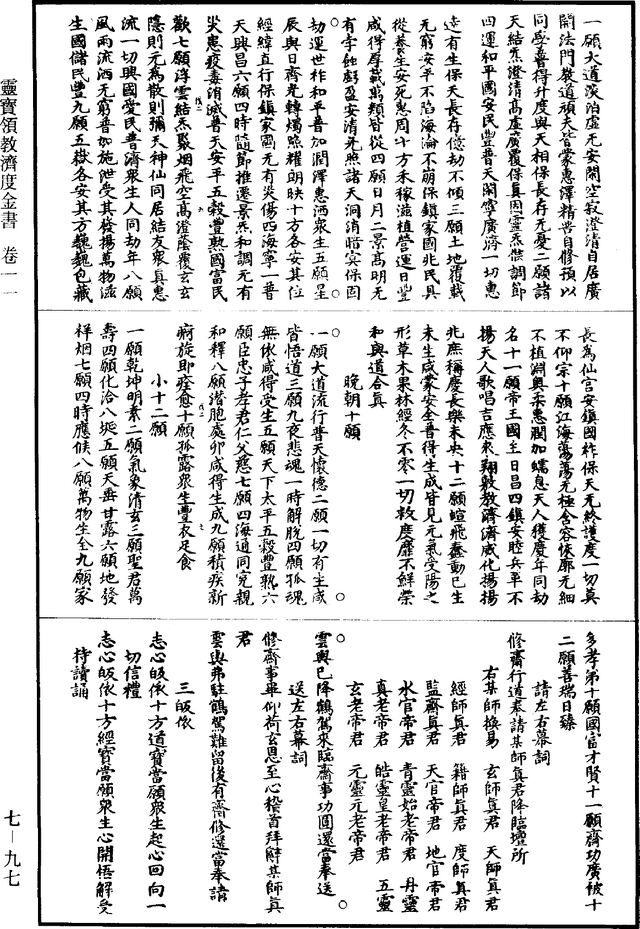 一願大道淡泊虛无安閑空寂澄清自居廣
開法門啟道頑夫皆蒙惠澤精苦自修預以
同學普得升度與天相保長存无憂二願諸
天結炁澄清高虛廣覆保真固靈炁調節
四運和平國安民豐普天閑寧廣濟一切惠
逮有生保天長存億劫不傾三願土地覆載
无窮安平不陷海淪不崩保鎮家國兆民具
從養生安死惠周十方禾稼滋植營運日豐
咸得厚載萬類皆從四願日月二景高明无
有孛蝕虧盈安清光照諸天洞消暗冥保固
劫運世祚和平普加潤澤惠洒衆生五願星
辰與日齊光轉燭照耀朗映十方各安其位
經緯直行保鎮家國无有災傷四海寧一普
天興昌六願四時隨節推遷景炁和調无有
灾患疫毒消滅普天安平五穀豐熟國富民
歡七願浮雲結炁聚烟飛空高澄蔭覆玄玄
隱則元為散則彌天神仙同居結友衆真惠
流一切興國愛民普濟衆生人同劫年八願
風雨流洒无窮普加施受其發揚萬物滋
生國儲民豐九願五嶽各安其方巍巍包藏
長為仙宮安鎮國祚保天无終護度一切莫
不仰宗十願江海蕩蕩无極含容恢廓无細
不植淵奧柔惠潤加蠕息天人獲慶年同劫
名十一願帝王國主日昌四鎮安睦兵革不
揚天人歌唱吉應來翔敷教濟濟威化揚揚
兆庶稱慶長樂未央十二願蝖飛蠢動已生
未生咸蒙安全普得生成皆見元氣受陽之
形草木果林經冬不零一切救度靡不鮮榮
和與道合真
晚朝十願
一願大道流行普天懷德二願一切有生咸
皆悟道三願九夜悲魂一時解脫四願孤魂
無依咸得受生五願天下太平五穀豐熟六
願臣忠子孝君仁父慈七願四海通同寃親
和釋八願潛胞處卵咸得生成九願積疾新
痾旋即痊愈十願孤露衆生豐衣足食
小十二願
一願乾坤明素二願氣象清玄三願聖君萬
壽四願化洽八埏五願天垂甘露六願地發
祥烟七願四時應候八願萬物生全九願家
多孝弟十願國富才賢十一願齋功廣被十
二願善瑞日臻
請左右幕詞
修齋行道奉請某師真君降臨壇所
右某師換易 玄師真君 天師真君
經師真君 籍師真君 度師真君
監齋真君 天官帝君 地官帝君
水官帝君 青靈始老帝君 丹靈
真老帝君 皓靈皇老帝君 五靈
玄老帝君 元靈元老帝君
雲輿已降鶴駕來臨齋事功圓還當奉送
送左右幕詞
修齋事畢仰荷玄恩至心稽首拜辭某師真
君
雲輿弗駐鶴駕難留後有齋修還當奉請
三皈依
志心皈依十方道寶當願衆生起心回向一
切信禮
志心皈依十方經寶當願衆生心開悟解受
持讀誦
靈寶領教濟度金書 卷一一
七—九七